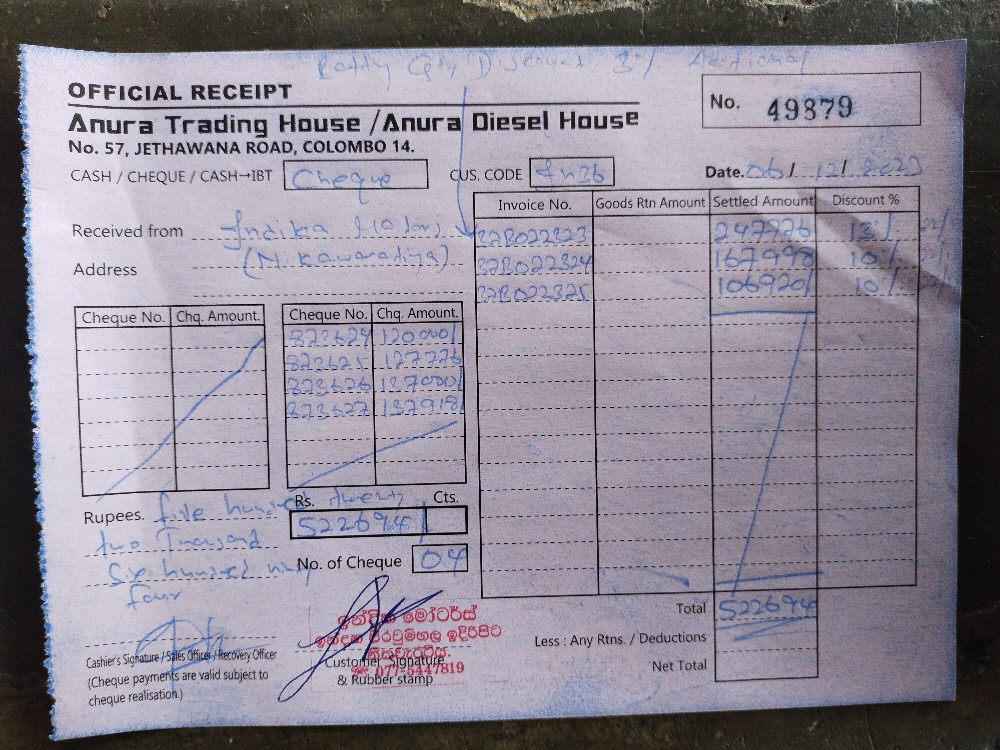 Discount 3% Aditional
OFFICIAL RECEIPT
No. 49879
Anura Trading House / Anura Diesel House
No. 57, JETHAWANA ROAD, COLOMBO 14.
CASH / CHEQUE / CASH→IBT Cheque CUS. CODE Date. 06/12/2023
Invoice No. Goods Rtn Amount Settled Amount Discount %
Received from Indika
Address
247776 12%
167998 10%
106920/ 10%
Cheque No. Chq. Amount. Cheque No. Chq. Amount.
873624 120000/
873625 127776
873626 137000/
873627 137918/
Rs. Cts.
Rupees. five hundred twenty
522694/
two Thousand
No. of Cheque 04
Six hundred ninty
four
Total 522694
Less : Any Rtns. / Deductions
Net Total
ඉන්දික මෝටර්ස්
☎ 077-5447819
Cashier's Signature / Sales Officer / Recovery Officer
(Cheque payments are valid subject to
cheque realisation.)
Customer Signature
& Rubber stamp